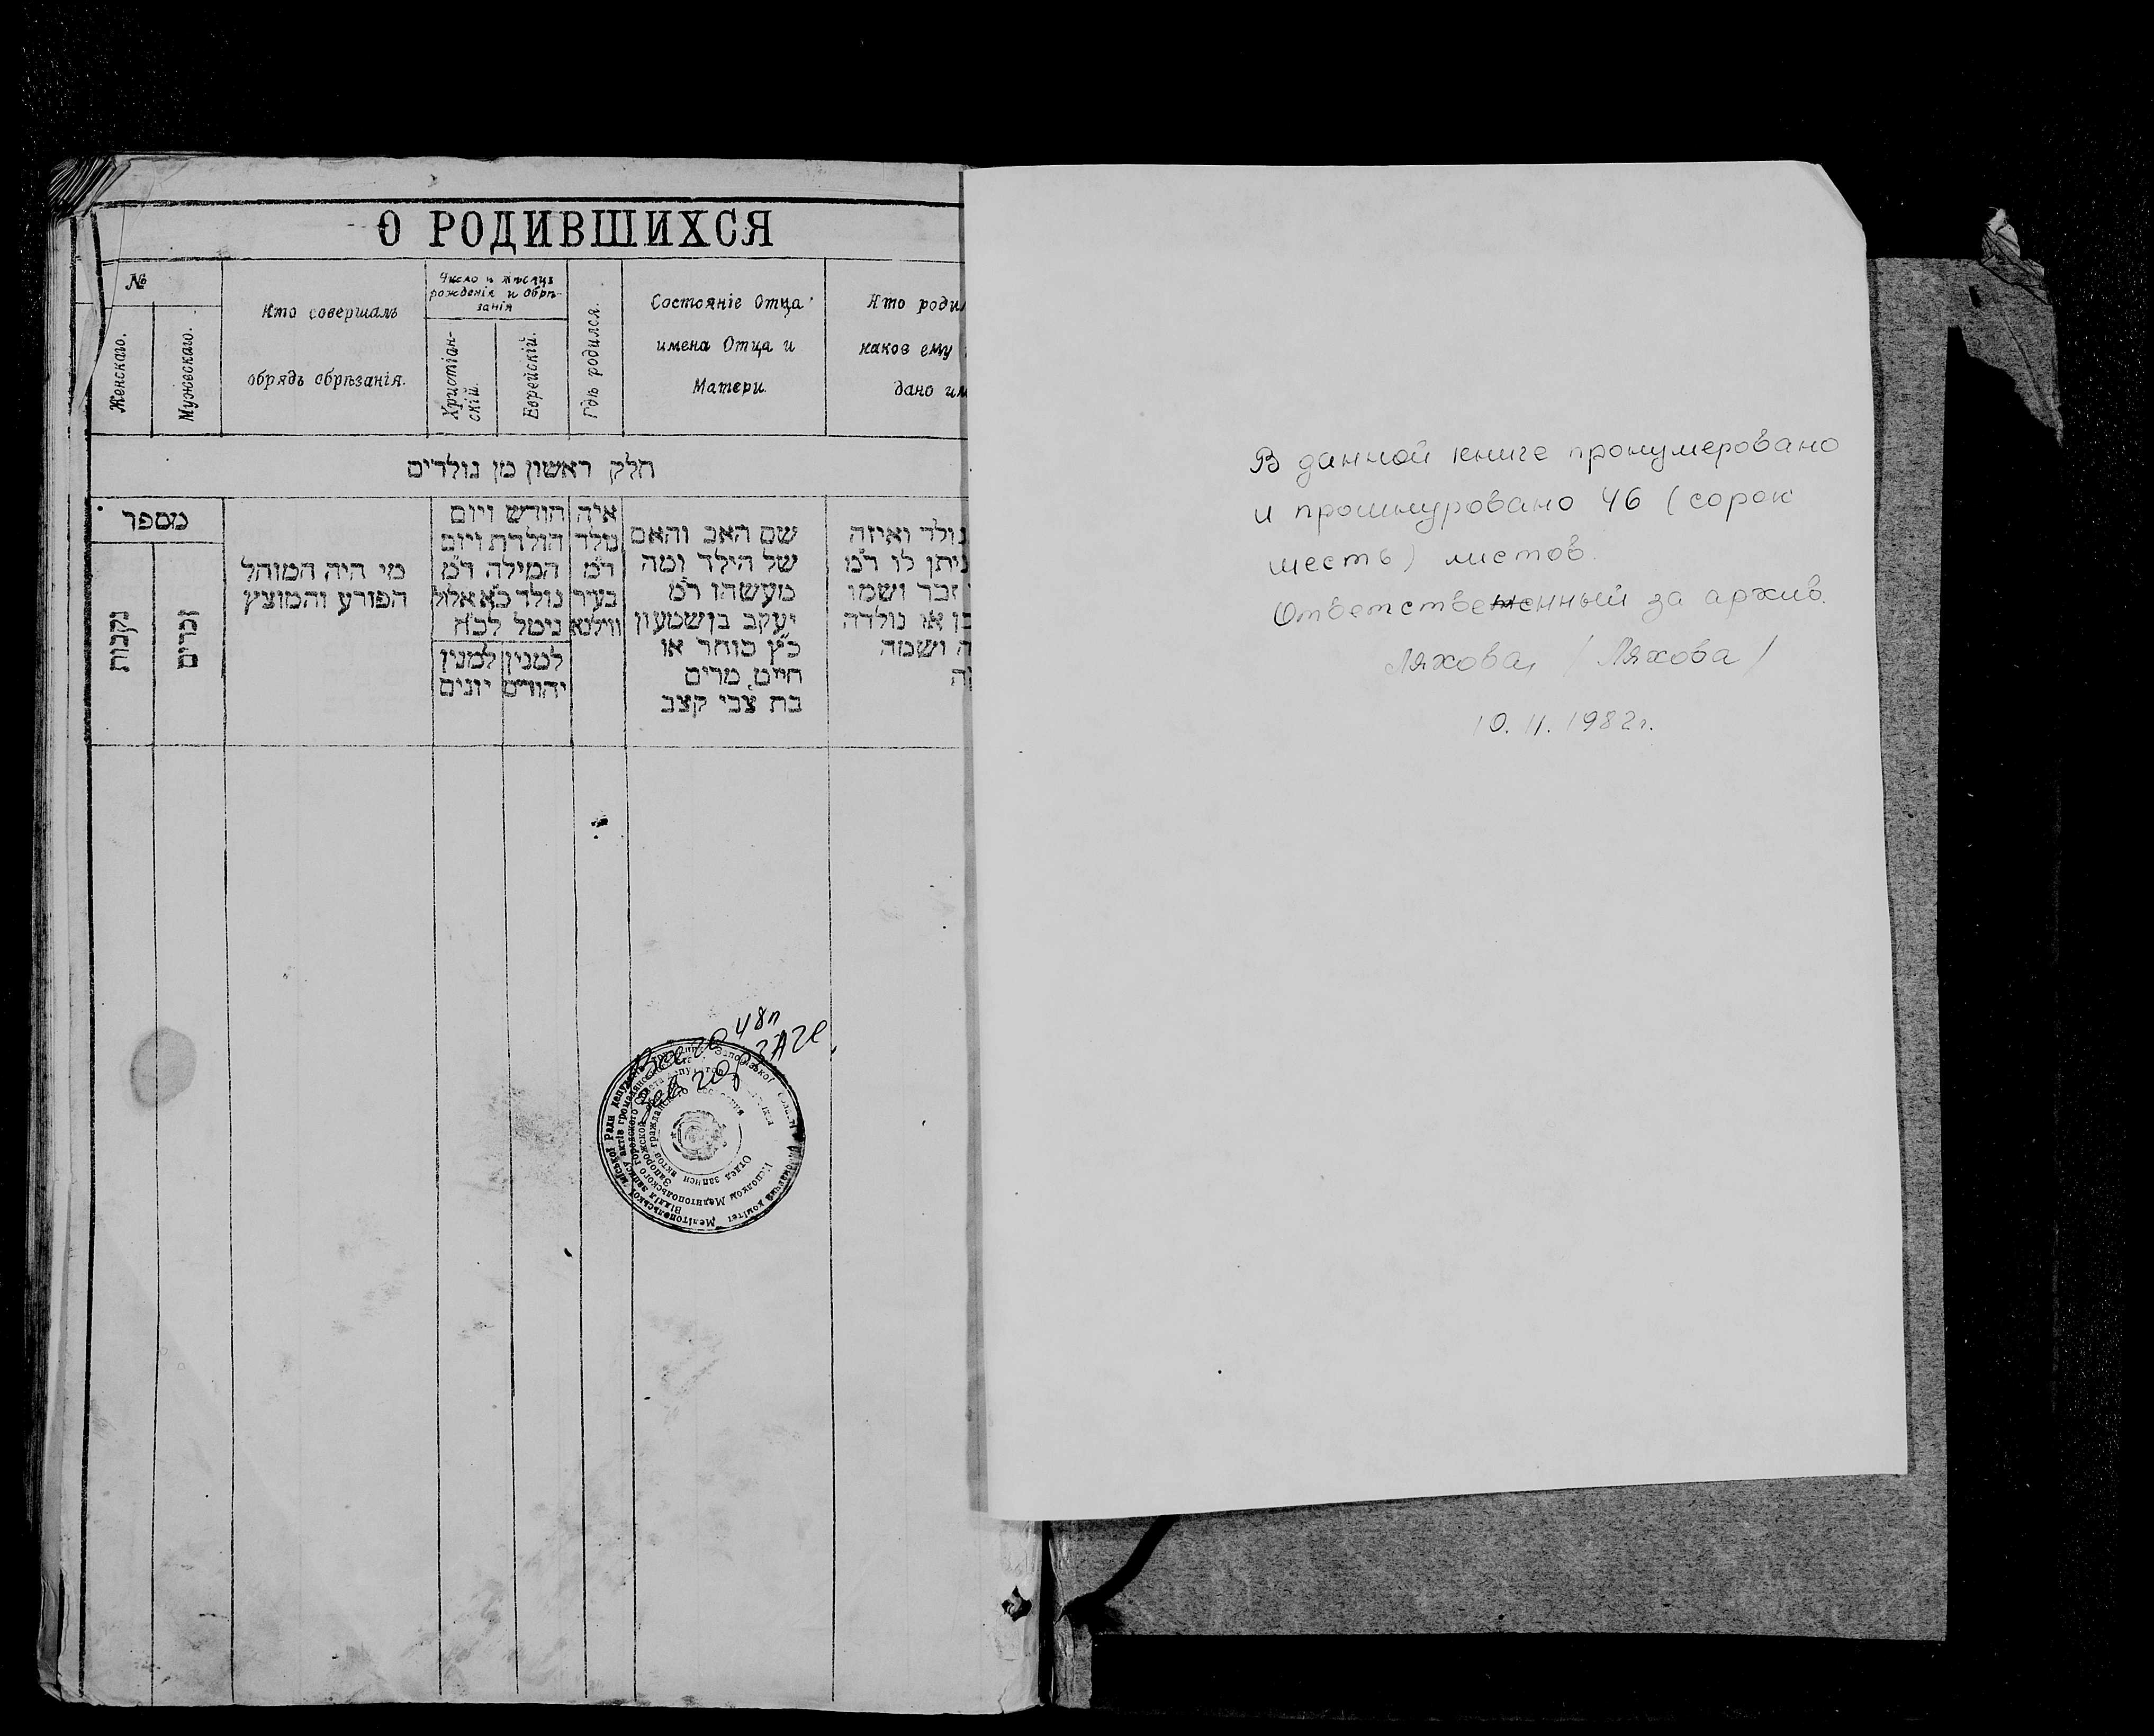 О РОДИВШИХСЯ
№
Женскаго.
Мужескаго.
Кто совершалъ
обрядъ обрѣзанія.
Число и мѣсяцъ
рожденія и обрѣ-
занія
Христіан-
скій.
Еврейскій.
Гдѣ родился.
Состояніе Отца
имена Отца и
Матери.
Кто
каков ему
дано
חלק ראשון מן נולדים
מספר
נקבות
זכרים
מי היה המוהל
הפורע והמוצץ
חודש ויום
הולדת ויום
המילה ר״מ
נולד כ״א אלול
ניטל לכ״ח
למנין
יהודים
למנין
יונים
איה
נולד
ר״מ
בעיר
ווילנא
שם האב והאם
של הילד ומה
מעשהו ר״מ
יעקב בן שמעון
כ״ץ סוחר או
חיים מרים
בת צבי קצב
נולד ואיזה
ניתן לו ר״מ
זכר ושמו
או נולדה
ושמה
48п
Відділ запису актів громадян
Мелітопольської міської Ради депутатів
Отдел записи актов гражданского состояния
Исполком Мелитопольского городского Совета депутатов
Запорожской
В данной книге пронумеровано
и прошнуровано 46 (сорок
шесть) листов.
Ответственный за архив.
Ляхова, /Ляхова/
10.11.1982г.